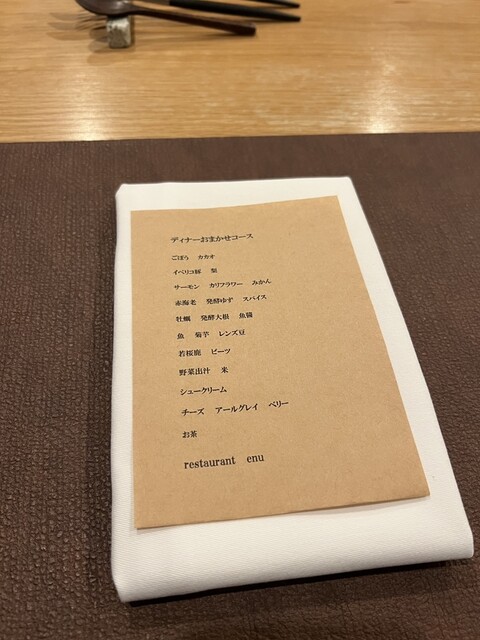 ディナーおまかせコース
ごぼう　カカオ
イベリコ豚　梨
サーモン　カリフラワー　みかん
赤海老　発酵ゆず　スパイス
牡蠣　発酵大根　魚醤
魚　菊芋　レンズ豆
若桜鹿　ビーツ
野菜出汁　米
シュークリーム
チーズ　アールグレイ　ベリー
お茶
restaurant　enu